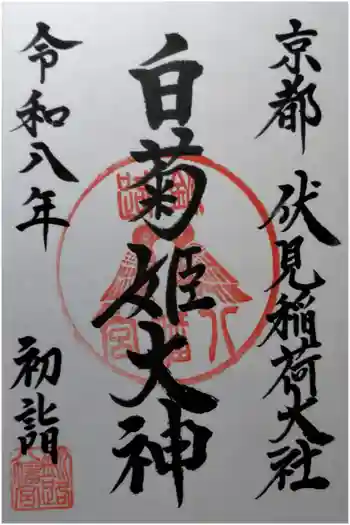 京都 伏見稲荷大社
白菊姫大神
令和八年 初詣